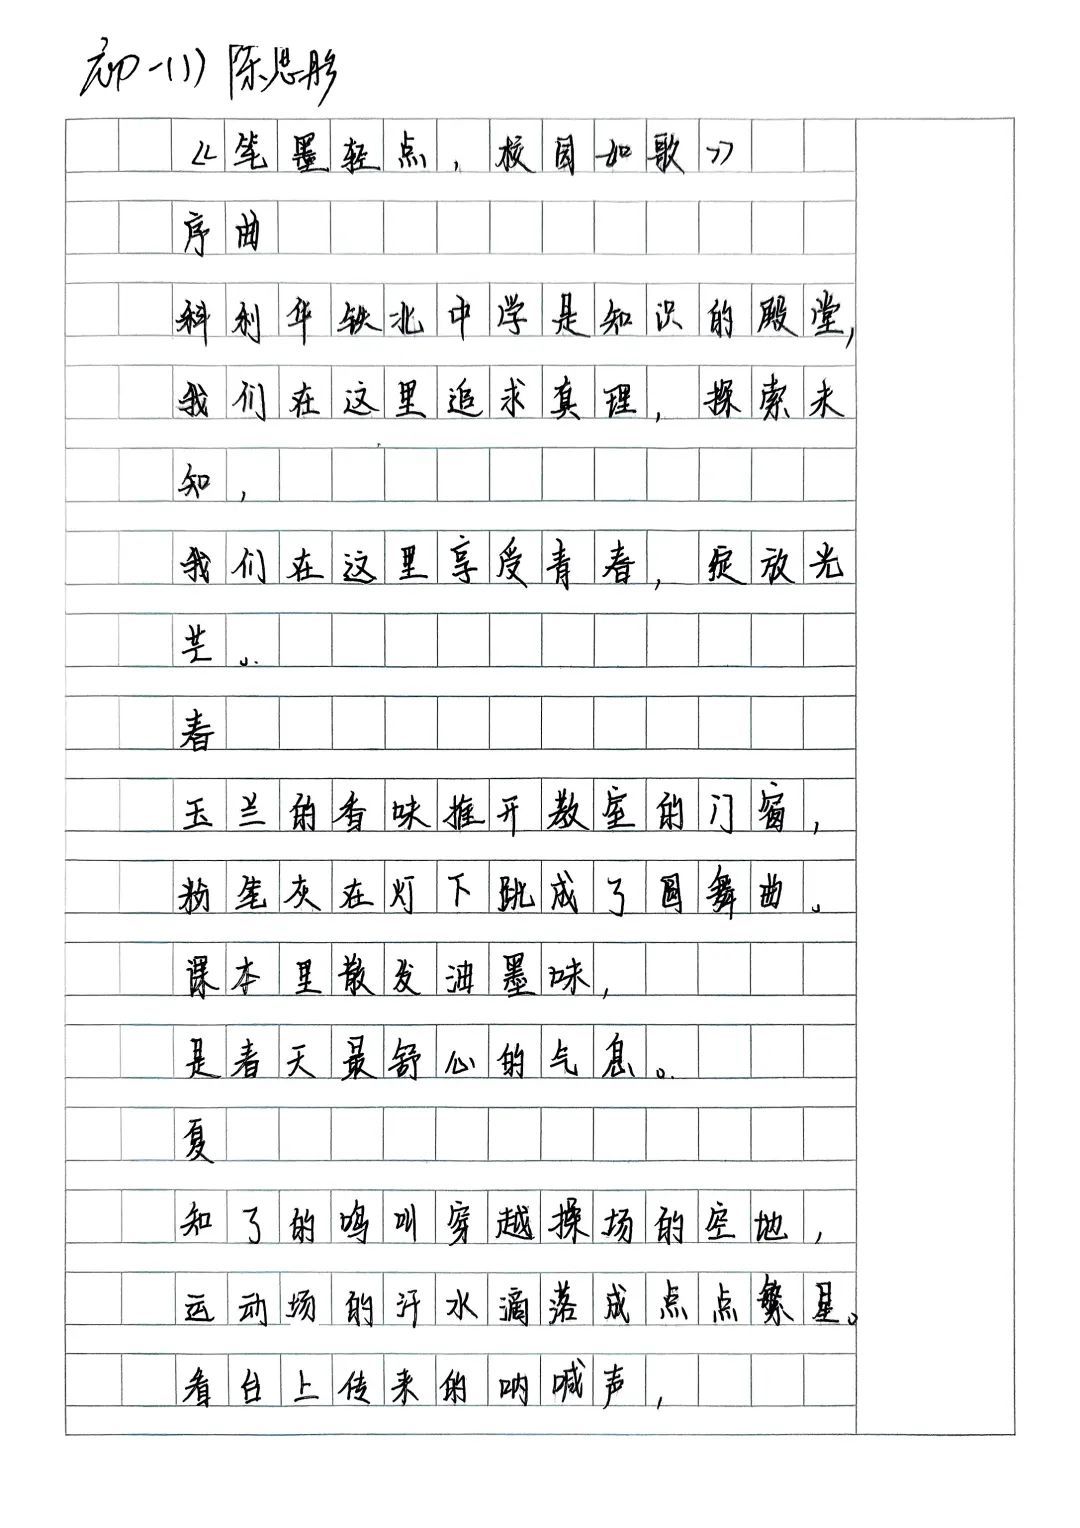 初一(1) 陈思彤
《笔墨轻点，校园如歌》
序曲
科利华铁北中学是知识的殿堂，
我们在这里追求真理，探索未
知，
我们在这里享受青春，绽放光
芒。
春
玉兰的香味推开教室的门窗，
粉笔灰在灯下跳成了圆舞曲。
课本里散发油墨味，
是春天最舒心的气息。
夏
知了的鸣叫穿越操场的空地，
运动场的汗水滴落成点点繁星。
看台上传来的呐喊声，